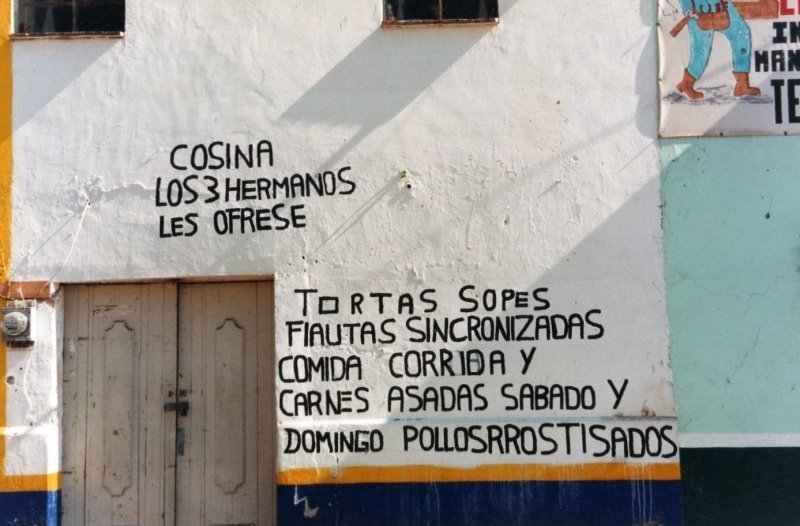 COSINA
LOS 3 HERMANOS
LES OFRESE
TORTAS SOPES
FIAUTAS SINCRONIZADAS
COMIDA CORRIDA Y
CARNES ASADAS SABADO Y
DOMINGO POLLOSRROSTISADOS